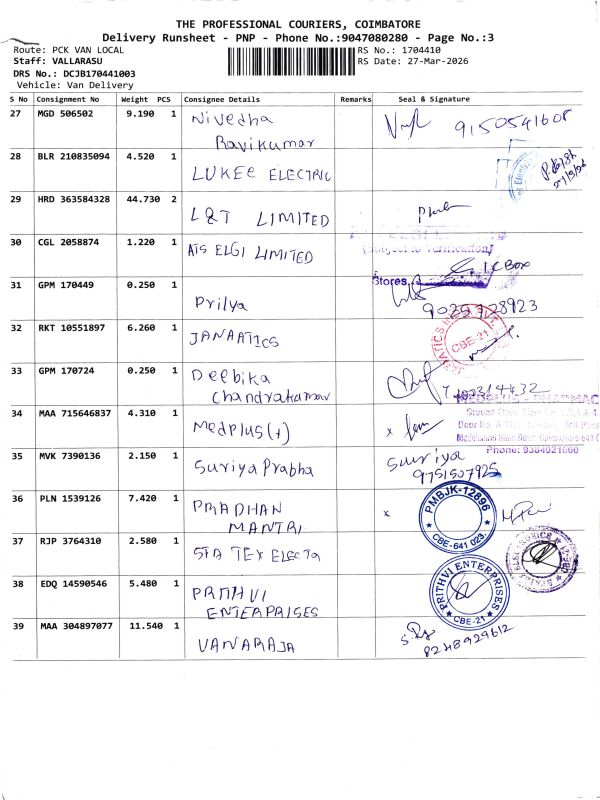 THE PROFESSIONAL COURIERS, COIMBATORE
Delivery Runsheet - PNP - Phone No.:9047080280 - Page No.:3
Route: PCK VAN LOCAL
RS No.: 1704410
Staff: VALLARASU
RS Date: 27-Mar-2026
DRS No.: DCJB170441003
Vehicle: Van Delivery
S No Consignment No Weight PCS Consignee Details Remarks Seal & Signature
27 MGD 506502 9.190 1 Nivedha Ravikumar 9150541608
28 BLR 210835094 4.520 1 LUKEE ELECTRIC
29 HRD 363584328 44.730 2 L&T LIMITED
30 CGL 2058874 1.220 1 ATS ELGI LIMITED
(Subject to Verification)
1 C Box
Stores
31 GPM 170449 0.250 1 Prilya
32 RKT 10551897 6.260 1 JANAATICS
CBE-21
33 GPM 170724 0.250 1 Deebika Chandrakumar
34 MAA 715646837 4.310 1 Medplus(+) x
Phone: 9384021600
35 MVK 7390136 2.150 1 SuriyaPrabha Suriya
9751507925
36 PLN 1539126 7.420 1 PRADHAN MANTRI x
PMBJK-12896
CBE-641 023.
37 RJP 3764310 2.580 1 STA TEX ELECTA
38 EDQ 14590546 5.480 1 PRITHVI ENTERPRISES
PRITHVI ENTERPRISES
CBE-21
39 MAA 304897077 11.540 1 VANARAJA
8248929612